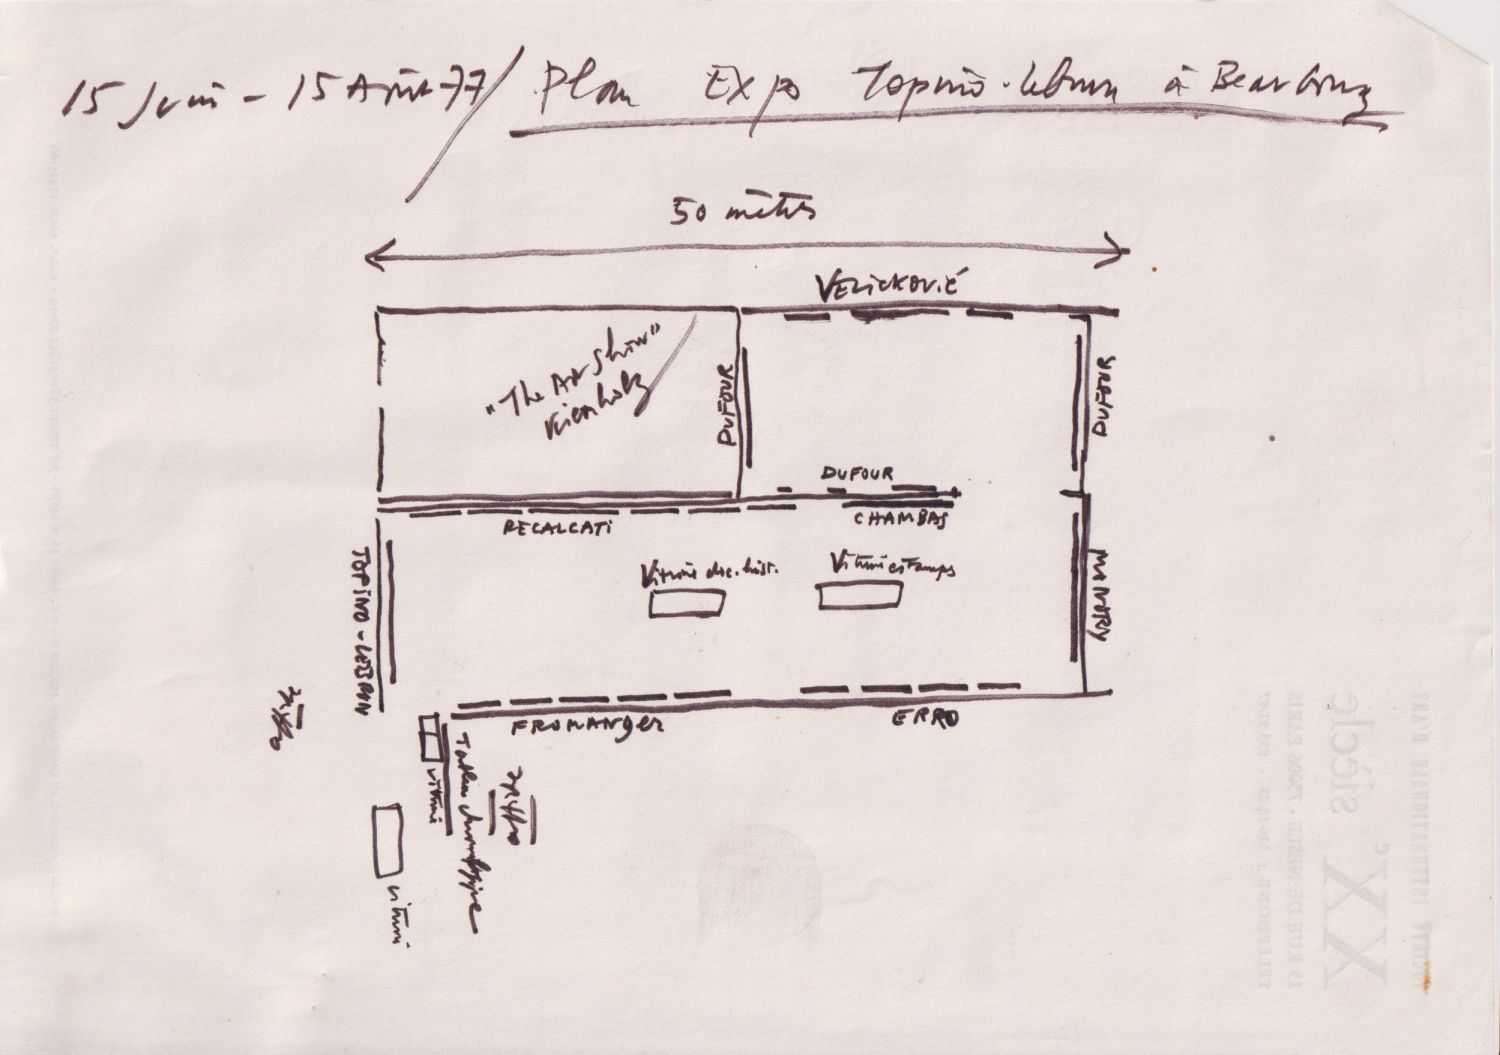 15 Juin - 15 Août 77 / Plan Expo Topino-Lebrun à Beaubourg
50 mètres
VELIČKOVIĆ
"The Art Show"
Kienholz
DUFOUR
DUFOUR
DUFOUR
RECALCATI
CHAMBAS
Vitrine doc. hist.
Vitrine estamps
TOPINO-LEBRUN
MONORY
FROMANGER
ERRO
griffo
vitrine
Tableau chronologique
griffo
vitrine
SOCIÉTÉ INTERNATIONALE D'ART
XXe siècle